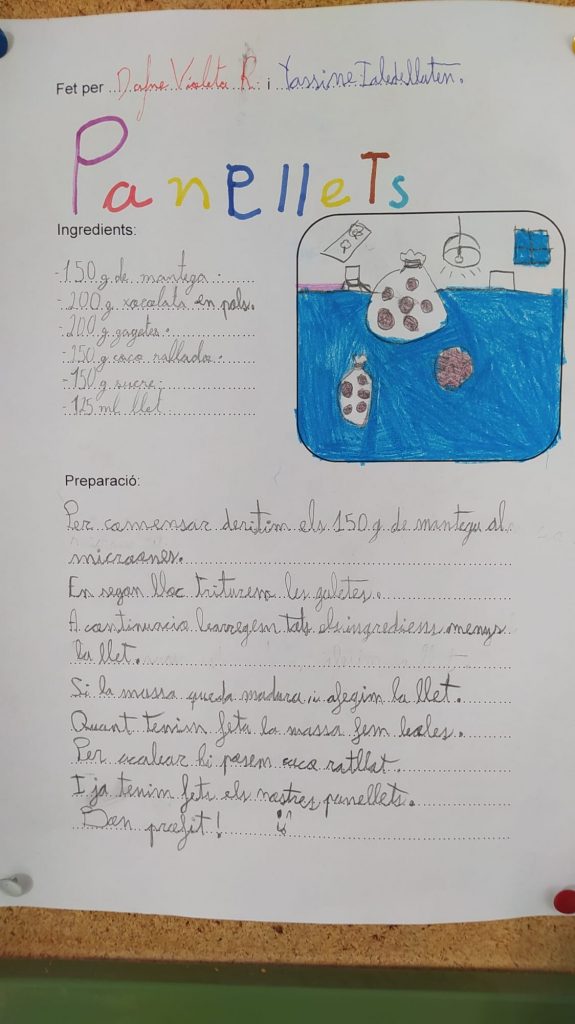 Fet per Dafne Violeta R. i Yassine
Panellets
Ingredients:
-150 g de mantega.
-200 g xocolata en pols.
-200 g gagetes.
-150 g coco rallado.
-150 g sucre.
-125 ml llet.
Preparació:
Per comensar deritim els 150 g de mantega al
microones.
En segon lloc triturem les galetes.
A continuació barregem tots els ingrediens menys
la llet.
Si la massa queda madura, afegim la llet.
Quant tenim feta la massa fem boles.
Per acabar hi posem coco ratllat.
I ja tenim fets els nostres panellets.
Bon profit!